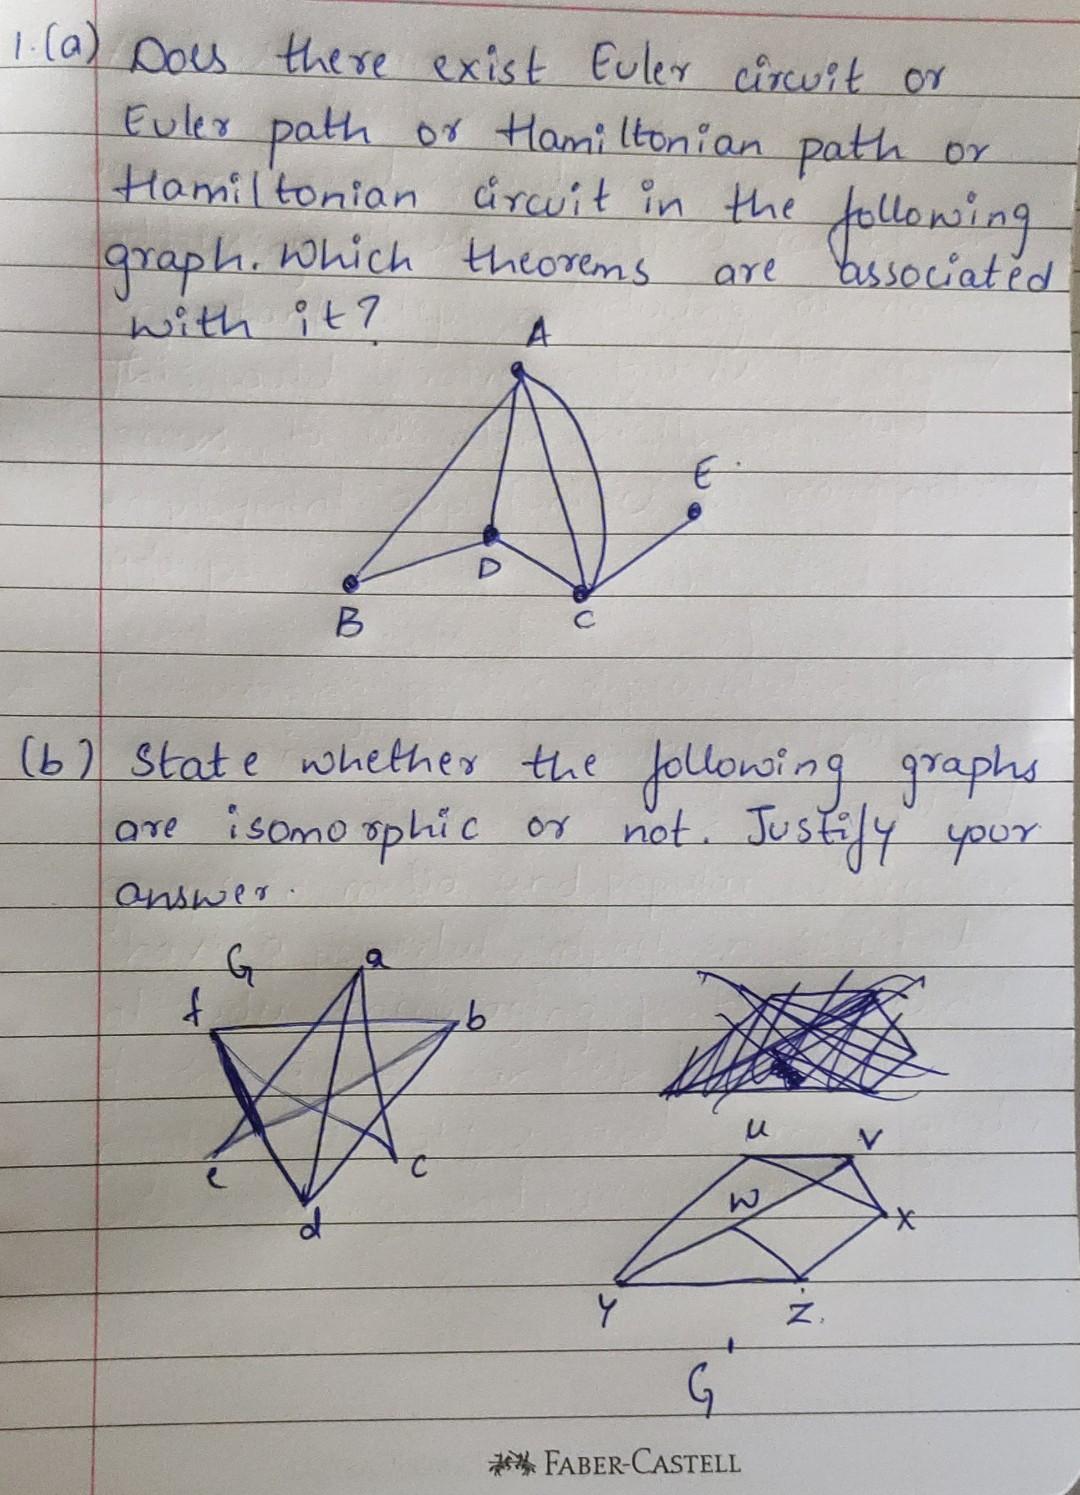 1.(a) Does there exist Euler circuit or
Euler path or Hamiltonian path or
Hamiltonian circuit in the following
graph. Which theorems are associated
with it?
A
E
D
B
C
(b) State whether the following graphs
are isomorphic or not. Justify your
answer.
G
a
f
b
e
c
d
u
v
w
x
y
z.
G'
FABER-CASTELL